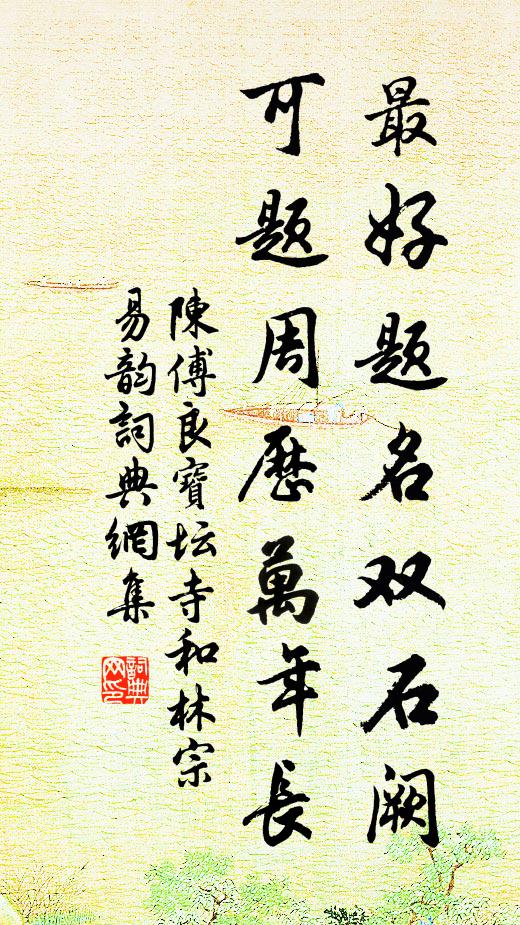 最好题名双石阙
可题周歷萬年長
陳傅良寶坛寺和林宗
易韵詞典網集
詞典网印